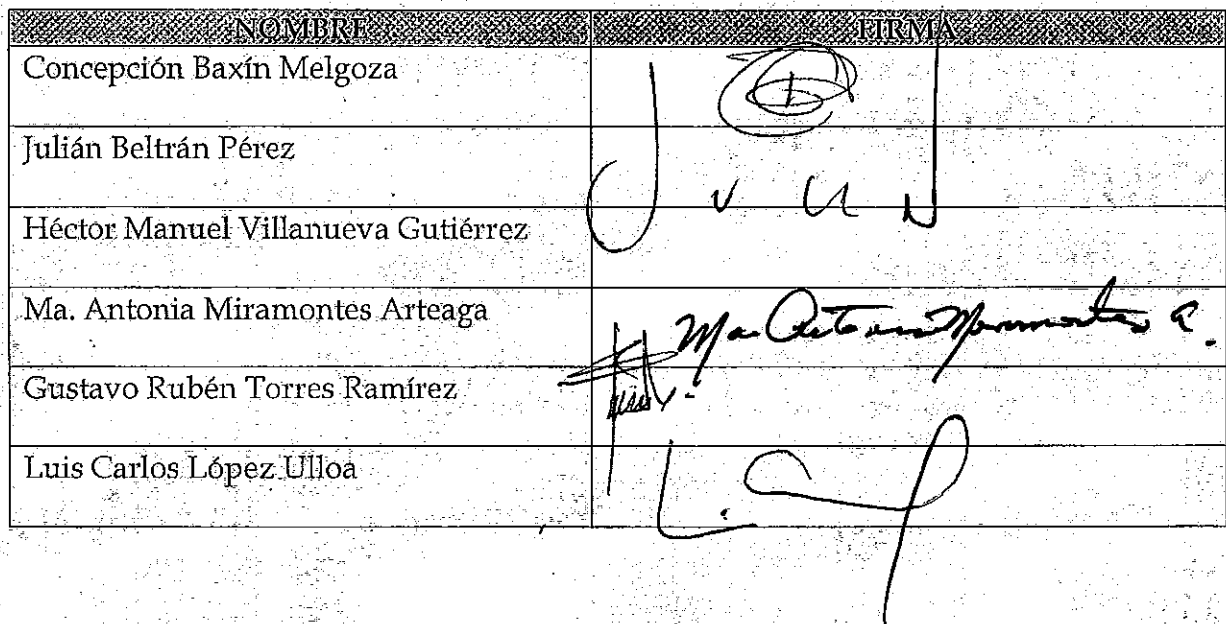 NOMBRE FIRMA
Concepción Baxín Melgoza
Julián Beltrán Pérez
Héctor Manuel Villanueva Gutiérrez
Ma. Antonia Miramontes Arteaga
Gustavo Rubén Torres Ramírez
Luis Carlos López Ulloa